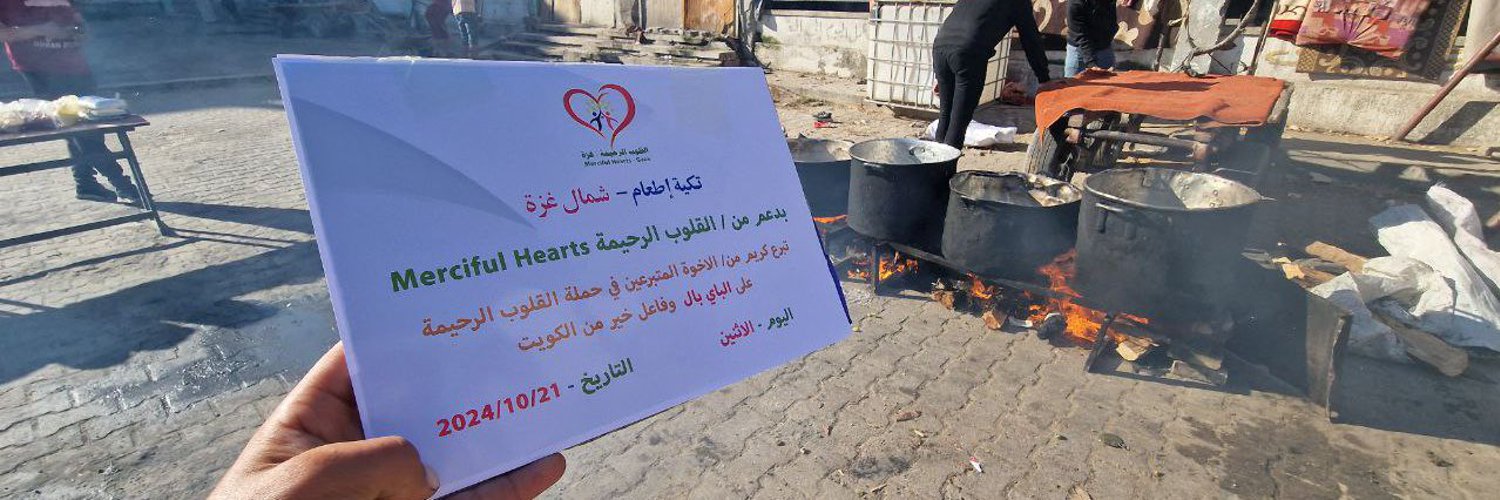 القلوب الرحيمة - غزة
Merciful Hearts - Gaza
تكية إطعام – شمال غزة
بدعم من / القلوب الرحيمة Merciful Hearts
تبرع كريم من/ الاخوة المتبرعين في حملة القلوب الرحيمة
على الباي بال وفاعل خير من الكويت
اليوم - الاثنين
التاريخ - 2024/10/21